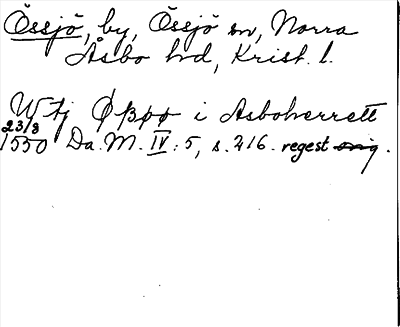 Össjö, by, Össjö sn, Norra
Åsbo hd, Krist. l.
Wtj Øßøø i Asboherrett
23/8
1550 Da. M. IV: 5, s. 216. regest orig.